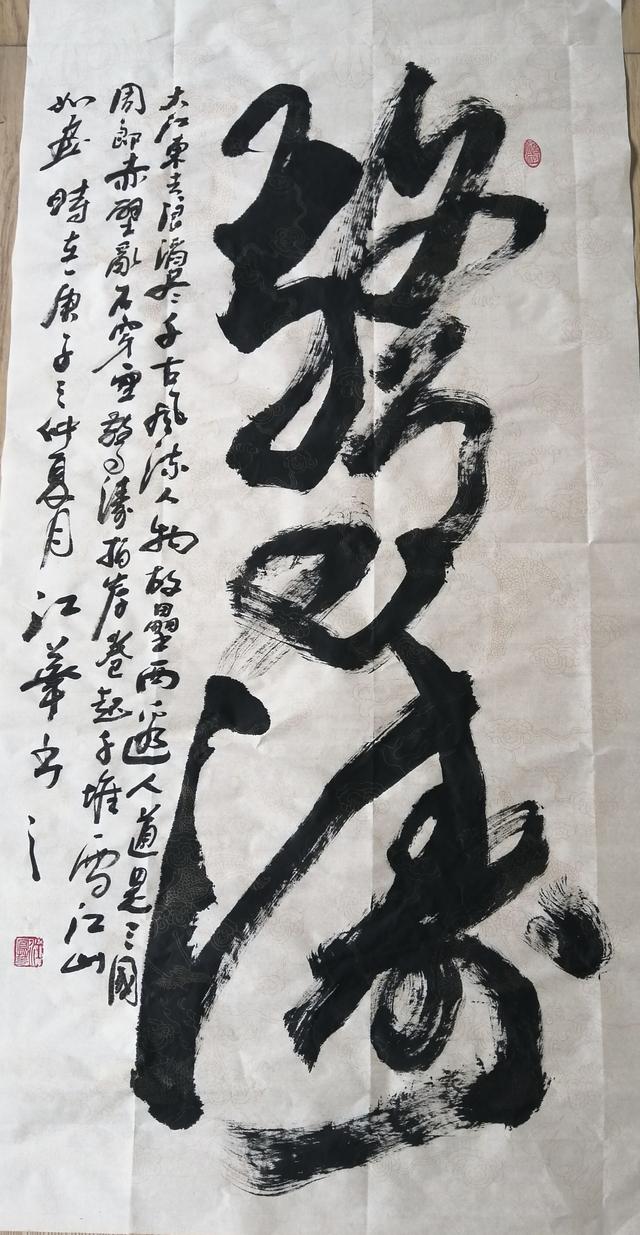 驚濤
大江東去浪淘尽千古風流人物故壘西邊人道是三國
周郎赤壁亂石穿雲驚濤拍岸卷起千堆雪江山
如畫 時在庚子之仲夏月 江華书之